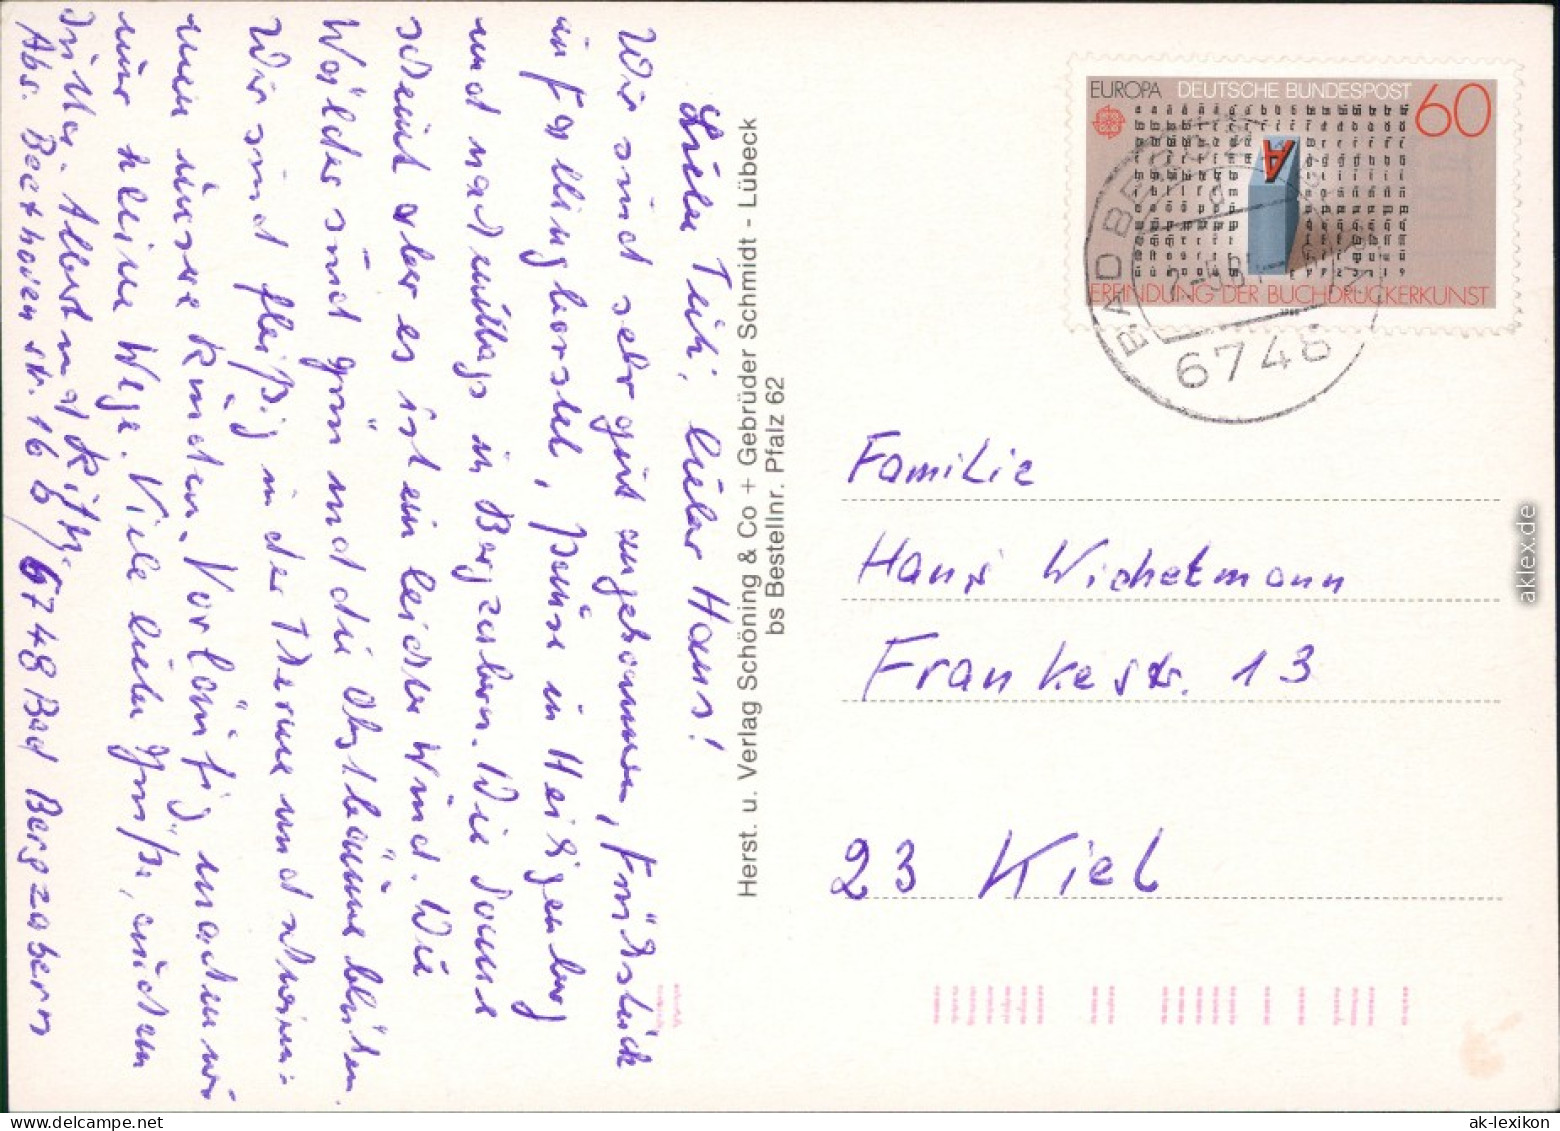 Liebe Tuti, lieber Hans!
Wir sind sehr gut angekommen, Frühstück
in Fallingbostel, Pause in Heiligenberg
und nachmittags in Bergzabern. Die Sonne
scheint aber es ist ein leichter Wind. Die
Wälder sind grün und die Obstbäume blühten.
Wir sind fleißig in der Therme und schwim-
men unsere Runden. Vorläufig machen wir
nur kleine Wege. Viele liebe Grüße, auch an
Albert und
Abs. Beethovenstr. 16 b / 6748 Bad Bergzabern
Herst. u. Verlag Schöning & Co + Gebrüder Schmidt - Lübeck
bs Bestellnr. Pfalz 62
EUROPA DEUTSCHE BUNDESPOST 60
ERFINDUNG DER BUCHDRUCKERKUNST
BAD BERGZABERN
6748
Familie
Hans Wichelmann
Frankestr. 13
23 Kiel
aklex.de
ak-lexikon